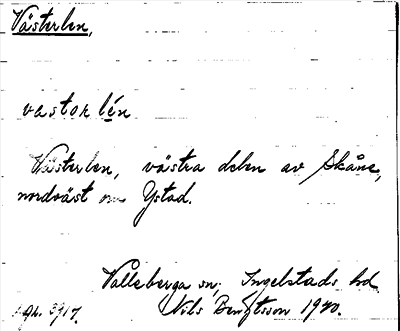 Västerlen,
vastorlén.
Västerlen, västra delen av Skåne,
nordväst om Ystad.
Vallsberga sn, Ingelstads hd
Nils Bengtsson 1920.
3917.